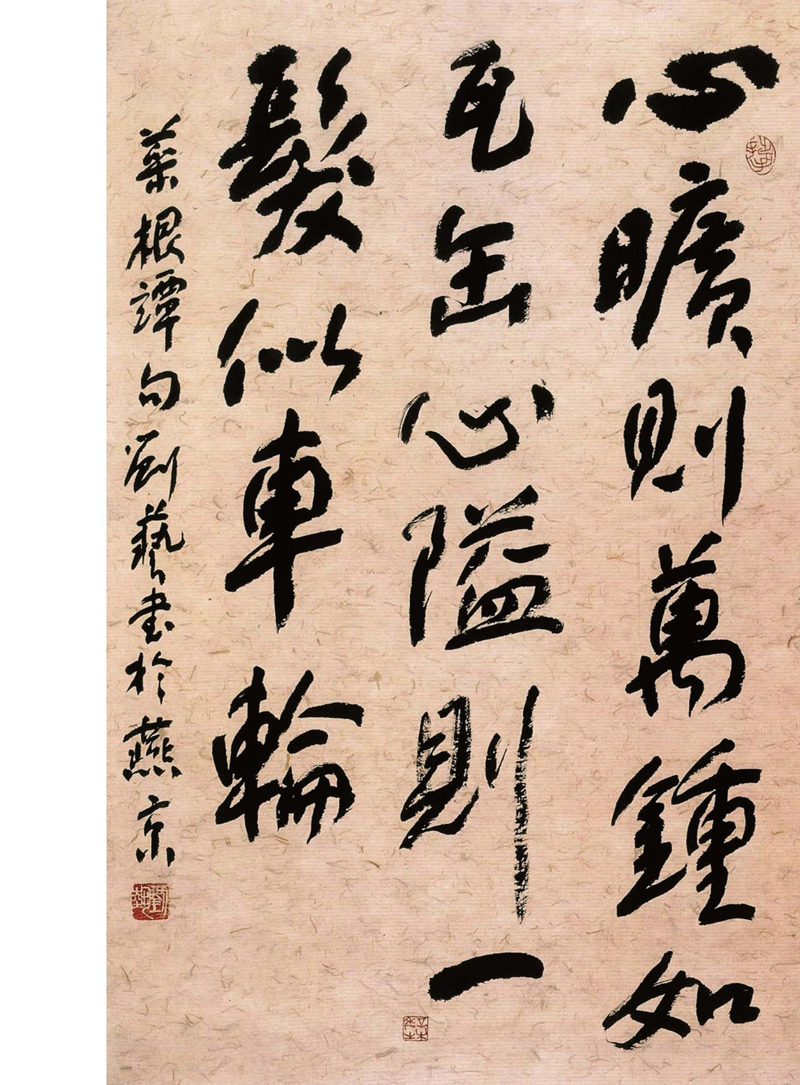 心曠則萬鍾如
瓦缶心隘則一
髮似車輪
菜根譚句劉藝書於燕京
劉藝